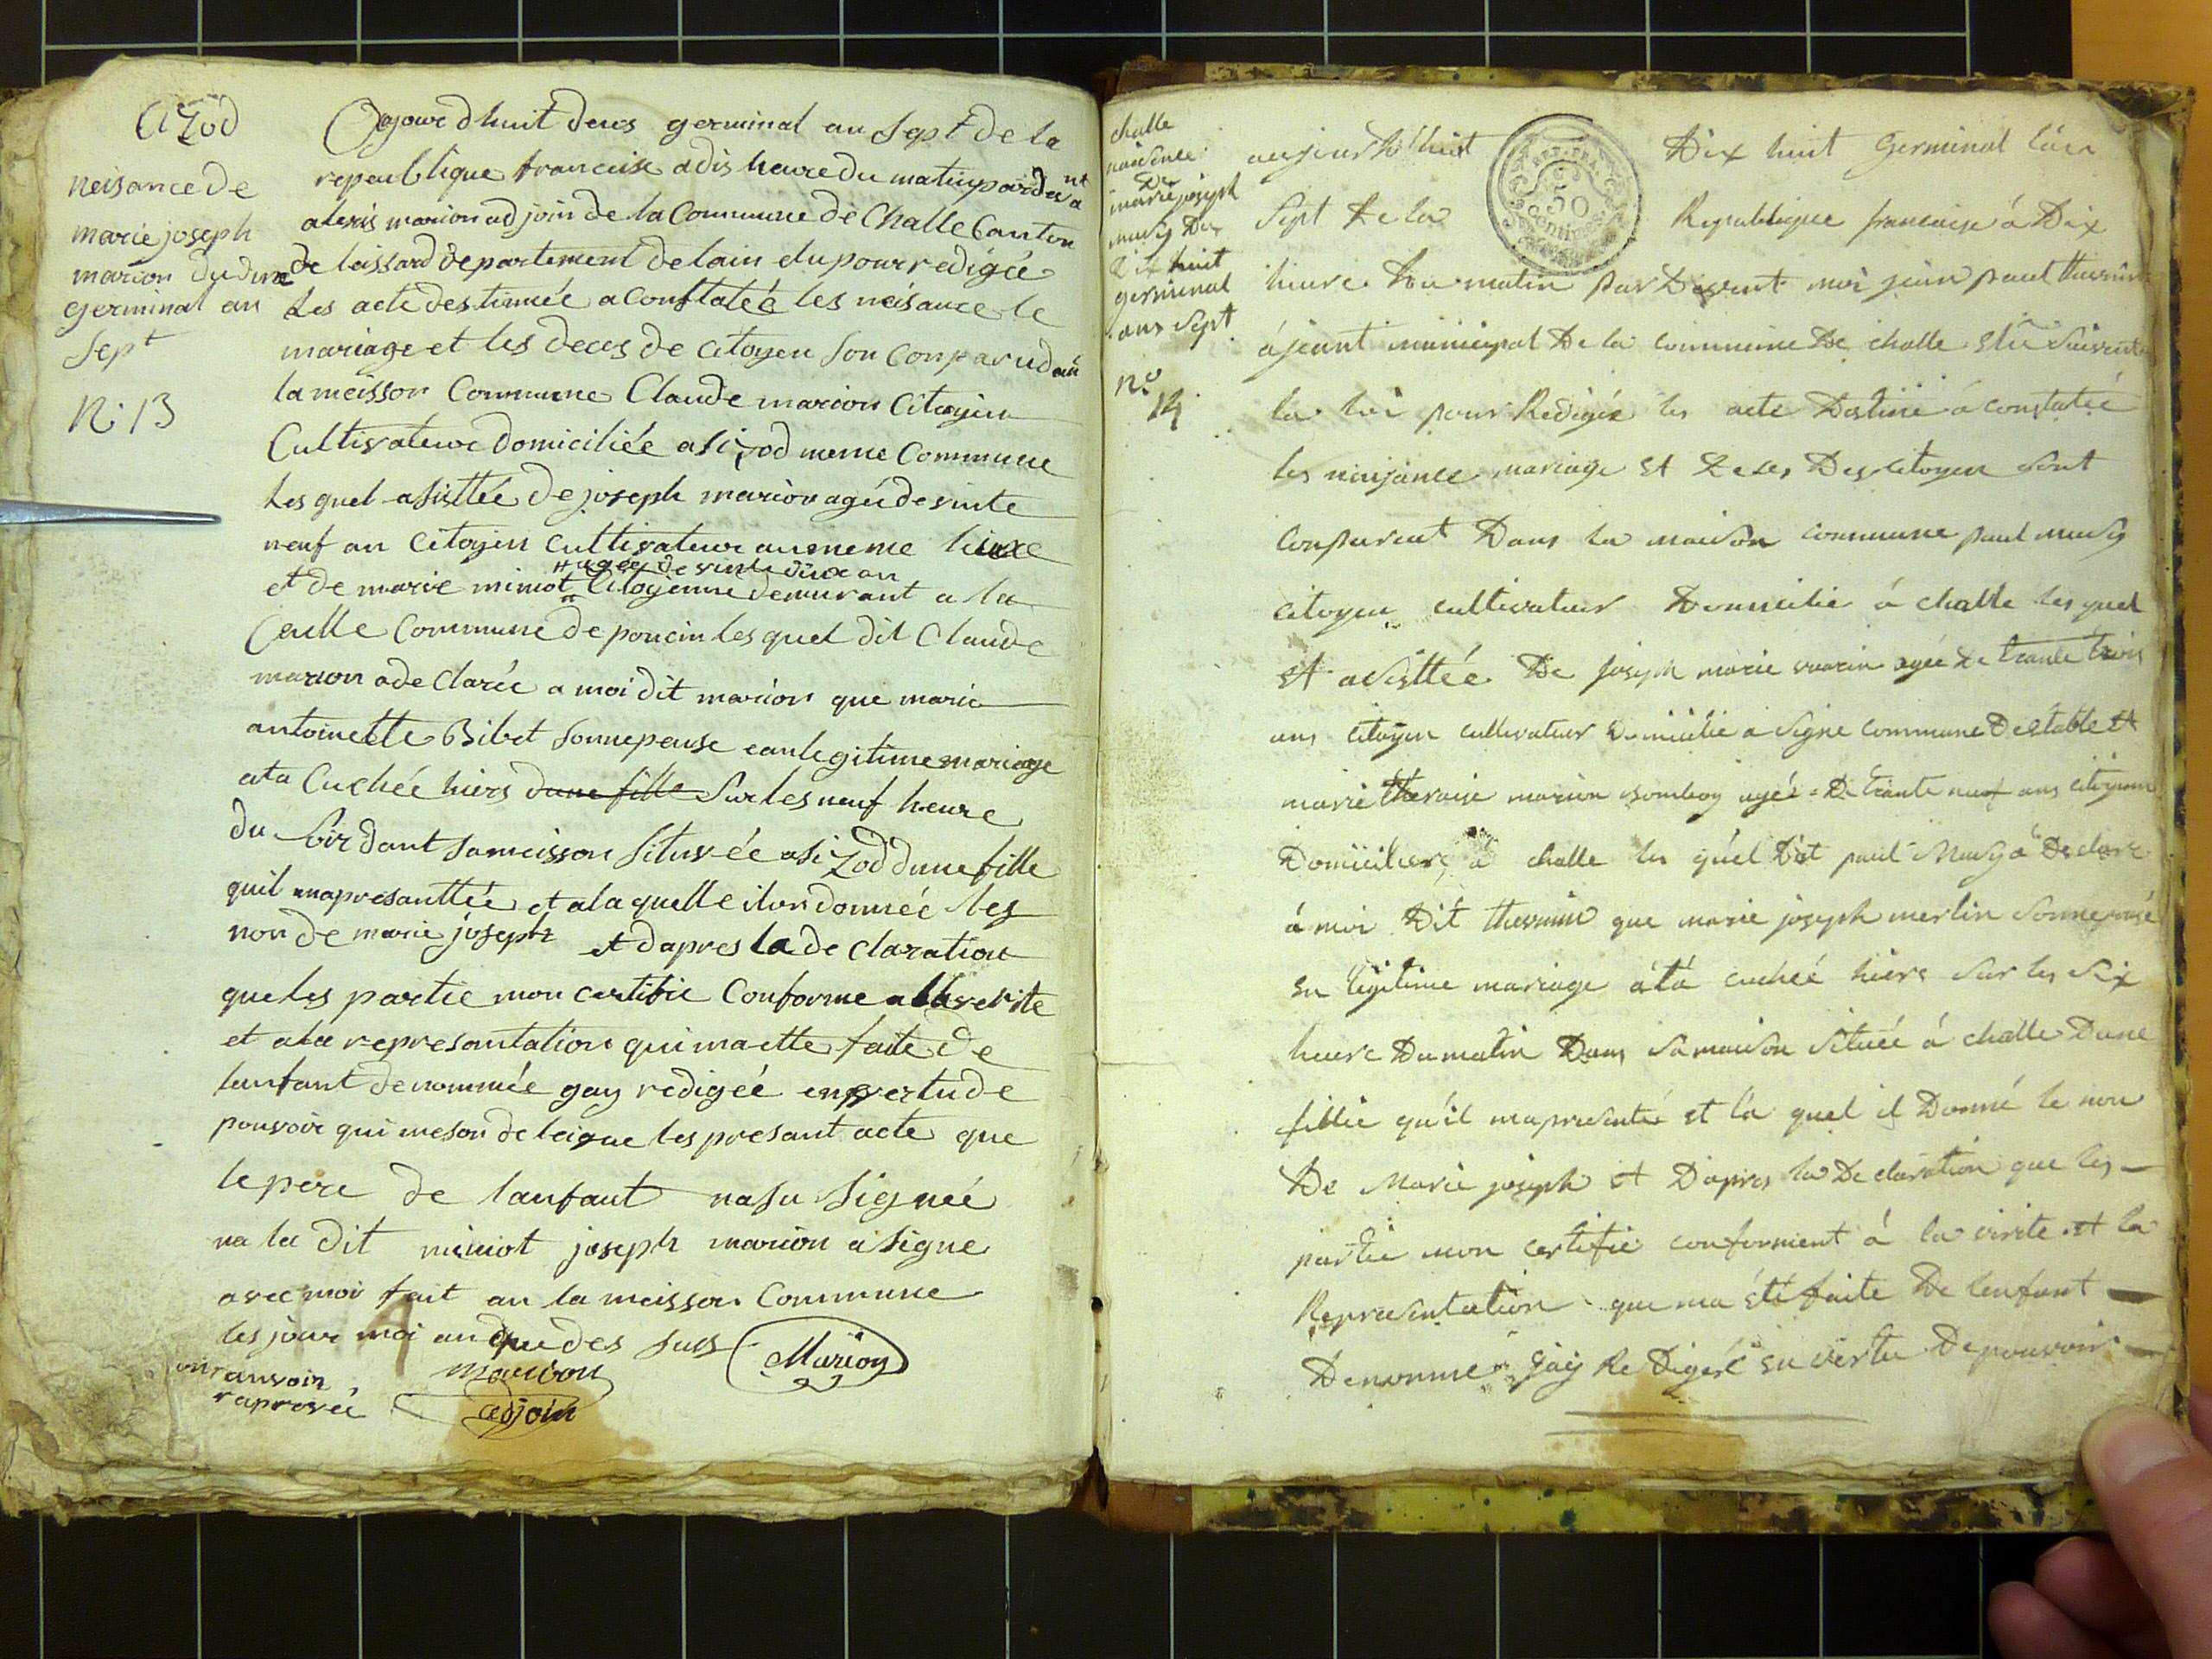 Cizod
neisance de
marie joseph
marion du deux
germinal an
sept
N: 13
Ojourdhuit deus germinal an sept de la
republique francaise a dis heure du matin par devant
alexis marion adjoin de la Commune de Challe Canton
de leissard departement de lain elu pour redigée
les acte destinée a Constatée les neisance le
mariage et les deces de citoyen son Conparu dan
la meisson Commune Claude marion Citoyin
Cultivateur domiciliée a sizod meme Commune
les quel asisttée de joseph marion agée de vinte
neuf an citoyin cultivateur au meme lieux
agée de vinte deux an
et de marie miniot citoyenne demurant a la
Ceulle Commune de poncin les quel dit Claude
marion a declarée a moi dit marion que marie
antoinette Bibet sonnepeuse ean legitime mariage
ata Cuchée hiers dune fille sur les neuf heure
du soir dant sa meisson situsée a sizod dune fille
quil mapresanttée et a la quelle ilon donnée les
non de marie joseph et dapres la de claration
que les partie mon certifie Conforme a la verite
et a la represantation qui ma ette faite de
lanfant denommée gay redigée en vertu de
pouvoir qui me son deleigue les presant acte que
le pere de lanfant na su signeé
na la dit miniot joseph marion a signe
avec moi fait an la meisson Commune
les jour moi an que des suss
Marion
marion
adjoin
ranvoin
raprovée
challe
naisance
de
marie joseph
musy du
dix huit
germinal
ans sept
no
14
aujourdhuit Dix huit Germinal lan
REP. FRA.
50
Centimes
Sept de la Republique francaise á Dix
heure du matin par Devent moi jean paul thevenin
ájeant municipal De la commune De challe élu suivent
la loi pour Redigée les acte Destiné á constatée
les naisance mariage et deces Des citoyen sont
conparent Dans la maison commune paul musy
citoyen cultivateur Domicilie á challe les quel
et asisttée De joseph marie vuarin agée de trante trois
ans citoyen cultivateur domicilie a signe commune destable et
marie theraise marion bomboy agée De trante neuf ans citoyenne
Domiciliere á challe les quel Dit paul Musy a Declare
á moi Dit thevenin que marie joseph merlin sonnepousé
en legitime mariage átá cuchée hiere sur les six
heure Du matin Dans sa maison située á challe Dune
fillie quil mapresenté et lá quel il Donné le non
De Marie joseph et Dapres la Declaration que les
partie mon certifie conforment á la virite et la
Representation que ma été faite De lenfant
Denomme jáy Redigere en vertu De pouvoir